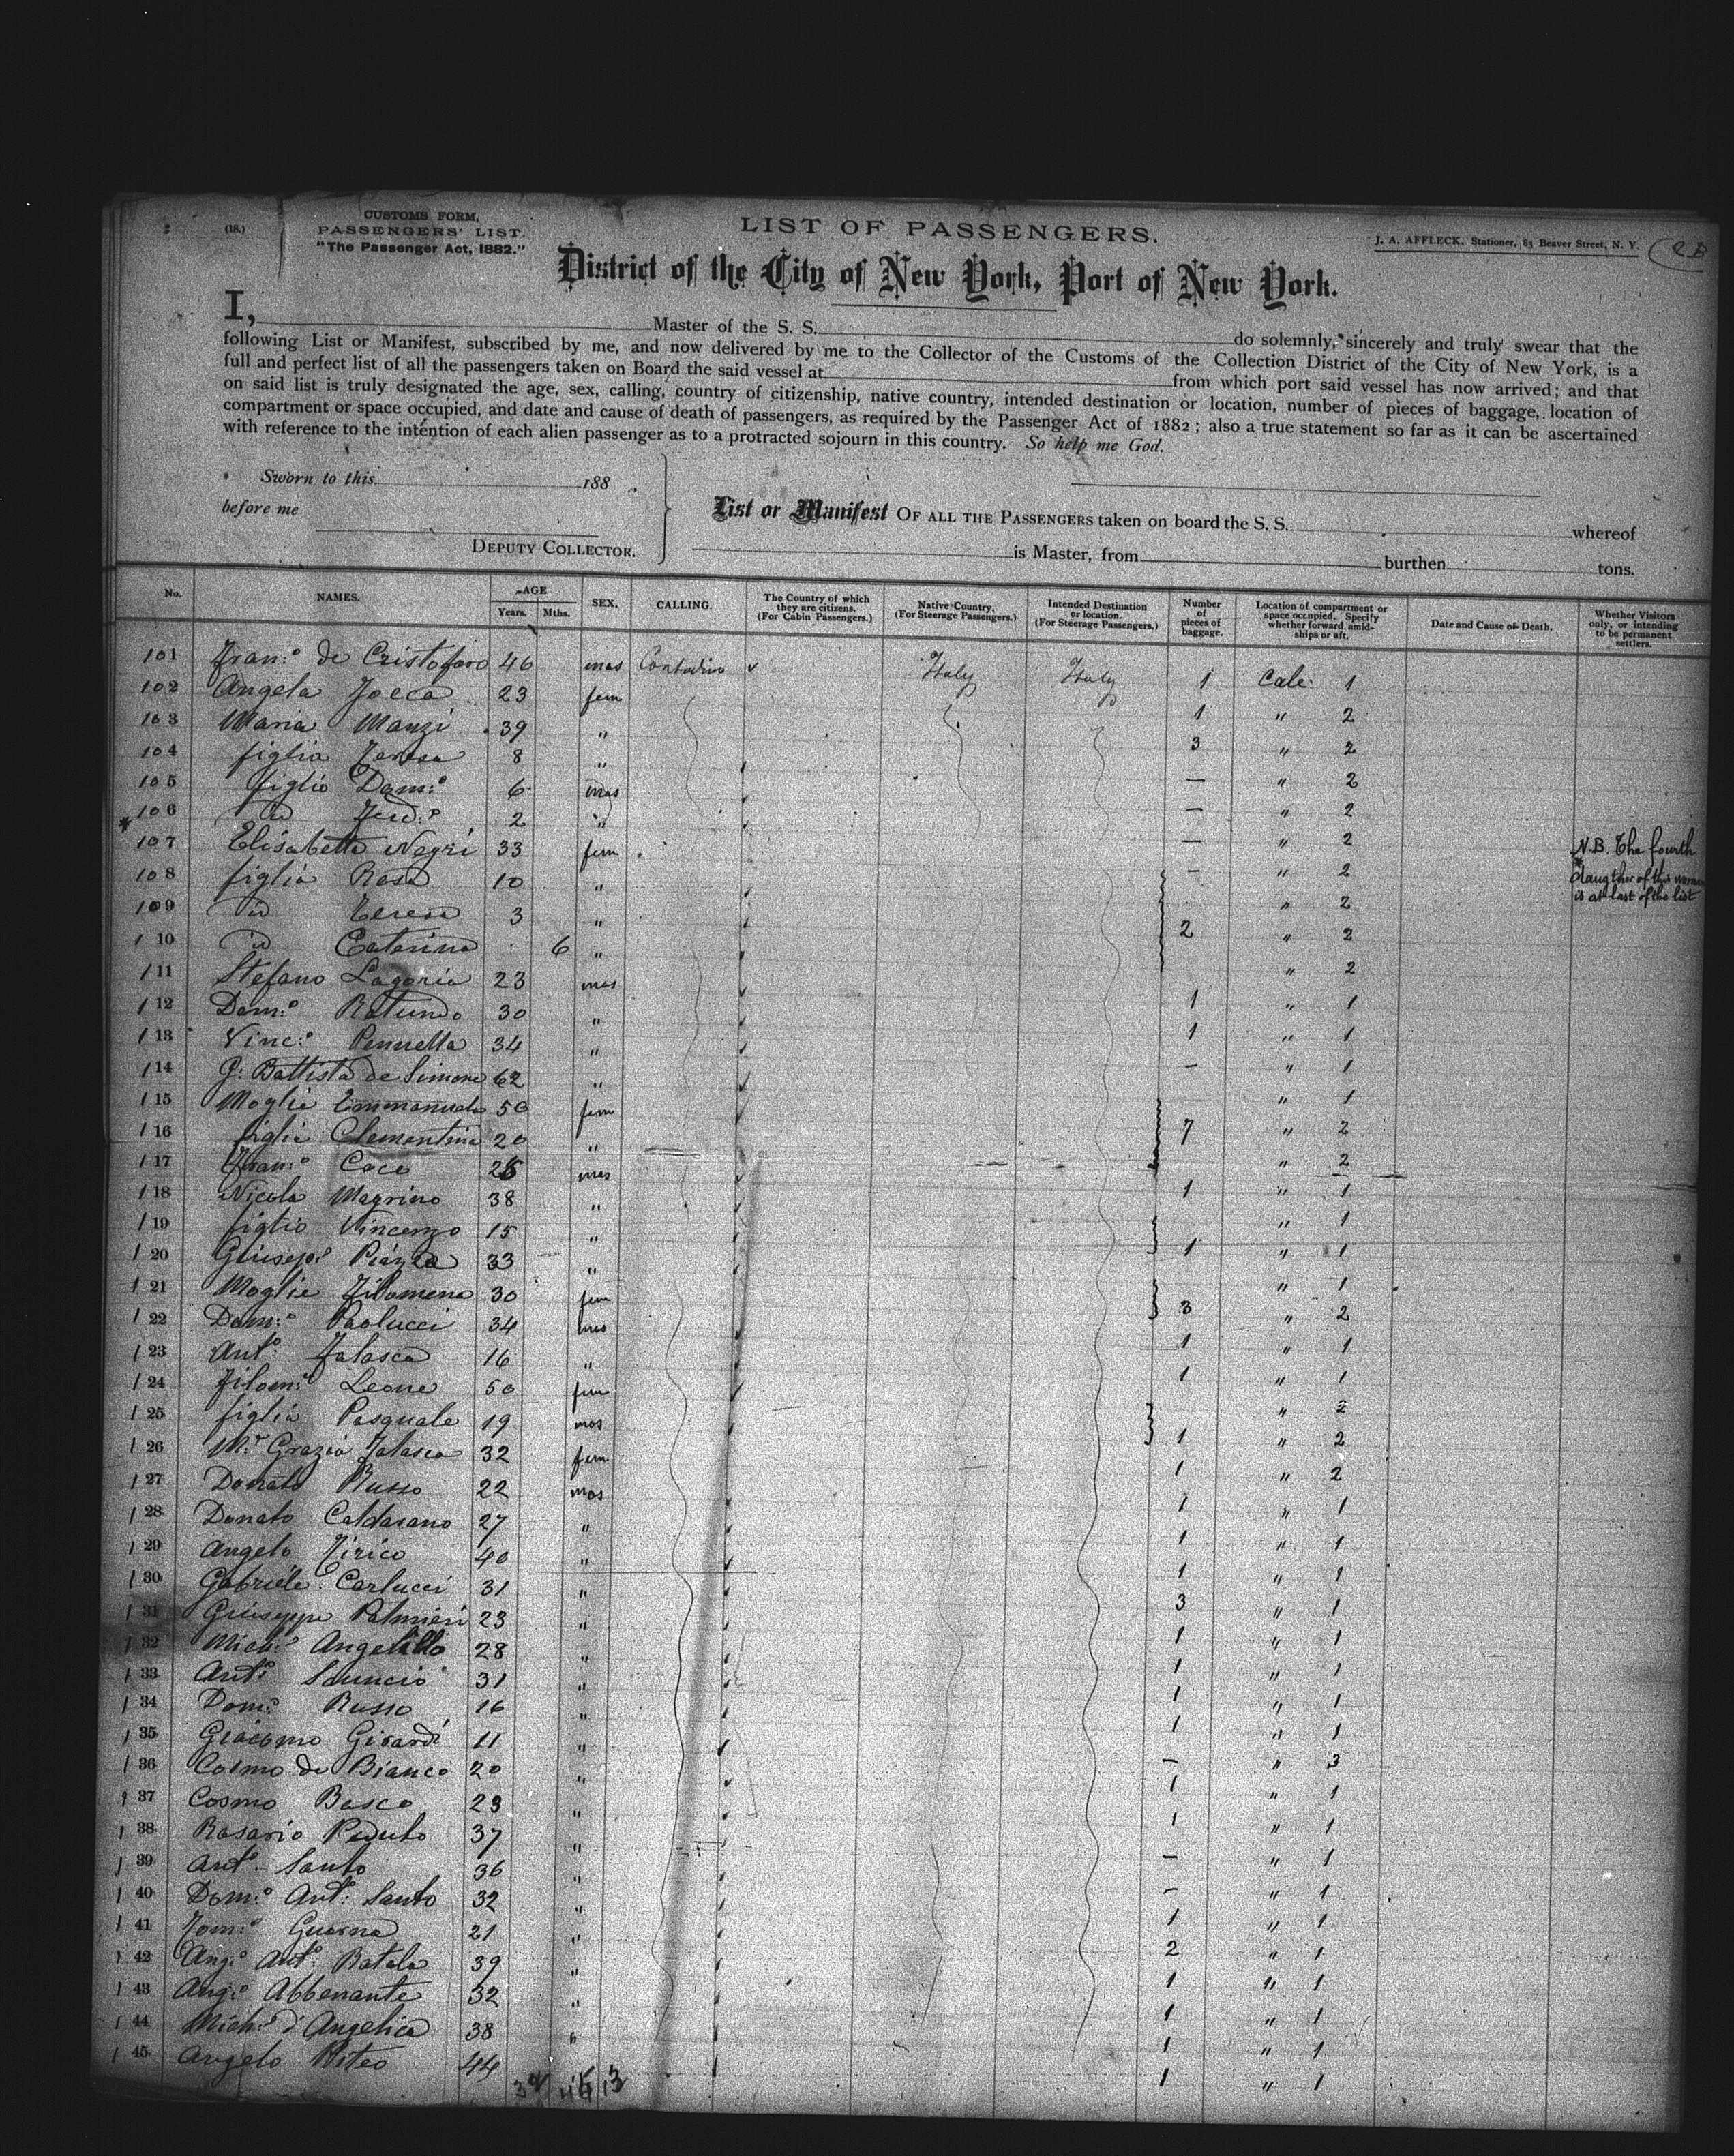 (18.)
CUSTOMS FORM,
PASSENGERS' LIST.
"The Passenger Act, 1882."
LIST OF PASSENGERS.
J. A. AFFLECK, Stationer, 85 Beaver Street, N. Y.
District of the City of New York, Port of New York.
I, Master of the S. S. do solemnly, sincerely and truly swear that the
following List or Manifest, subscribed by me, and now delivered by me to the Collector of the Customs of the Collection District of the City of New York, is a
full and perfect list of all the passengers taken on Board the said vessel at from which port said vessel has now arrived; and that
on said list is truly designated the age, sex, calling, country of citizenship, native country, intended destination or location, number of pieces of baggage, location of
compartment or space occupied, and date and cause of death of passengers, as required by the Passenger Act of 1882; also a true statement so far as it can be ascertained
with reference to the intention of each alien passenger as to a protracted sojourn in this country. So help me God.
Sworn to this 188
before me
DEPUTY COLLECTOR.
List or Manifest OF ALL THE PASSENGERS taken on board the S. S. whereof
is Master, from burthen tons.
No. NAMES. AGE Years. Mths. SEX. CALLING. The Country of which they are citizens. (For Cabin Passengers.) Native Country. (For Steerage Passengers.) Intended Destination or location. (For Steerage Passengers.) Number of pieces of baggage. Location of compartment or space occupied. Specify whether forward, amidships or aft. Date and Cause of Death. Whether Visitors only, or intending to be permanent settlers.
101 Fran:o de Cristofaro 46 mas Contadino Italy Italy 1 Cale 1
102 Angela 23 fem 1 " 2
103 Maria Manzi 39 " 3 " 2
104 figlia Teresa 8 " — " 2
105 figlio Dom:o 6 mas — " 2
106 id Ferd:o 2 " — " 2
* 107 Elisabetta Negri 33 fem " 2
N.B. The fourth
* daugther of this woman
is at last of the list
108 figlia Rosa 10 " " 2
109 id Teresa 3 " 2 " 2
110 id Caterina 6 " " 2
111 Stefano Lagoria 23 mas 1 " 1
112 Dom:o Rotundo 30 " 1 " 1
113 Vinc:o Pennella 34 " — " 1
114 G: Battista de Simone 62 " " 1
115 Moglie Emmanuela 50 fem 7 " 2
116 figlia Clementina 20 " " 2
117 Fran:o Coco 25 mas 1 " 1
118 Nicola Magrino 38 " " 1
119 figlio Vincenzo 15 " 1 " 1
120 Giusep:e Piazza 33 " " 1
121 Moglie Filomena 30 fem 3 " 2
122 Dom:o Paolucci 34 mas 1 " 1
123 Ant:o Falasca 16 " 1 " 1
124 Filom:a Leone 50 fem " 2
125 figlia Pasquale 19 mas 1 " 2
126 M:a Grazia Falasca 32 fem 1 " 2
127 Donato Russo 22 mas 1 " 1
128 Donato Caldarano 27 " 1 " 1
129 Angelo Tirico 40 " 1 " 1
130 Gabriele Carlucci 31 " 3 " 1
131 Giuseppe Palmieri 23 " 1 " 1
132 Mich:e Angelillo 28 " 1 " 1
133 Ant:o 31 " 1 " 1
134 Dom:o Russo 16 " 1 " 1
135 Giacomo Girardi 11 " — " 3
136 Cosmo de Bianco 20 " 1 " 1
137 Cosmo Basco 23 " 1 " 1
138 Rosario Peduto 37 " — " 1
139 Ant:o Santo 36 " — " 1
140 Dom:o Ant: Santo 32 " 1 " 1
141 Tom:o Guarna 21 " 2 " 1
142 Ang:o Ant:o Batala 39 " 1 " 1
143 Ang:o Abbenante 32 " 1 " 1
144 Mich:e d'Angelica 38 " 1 " 1
145 Angelo Piteo 44 1 " 1